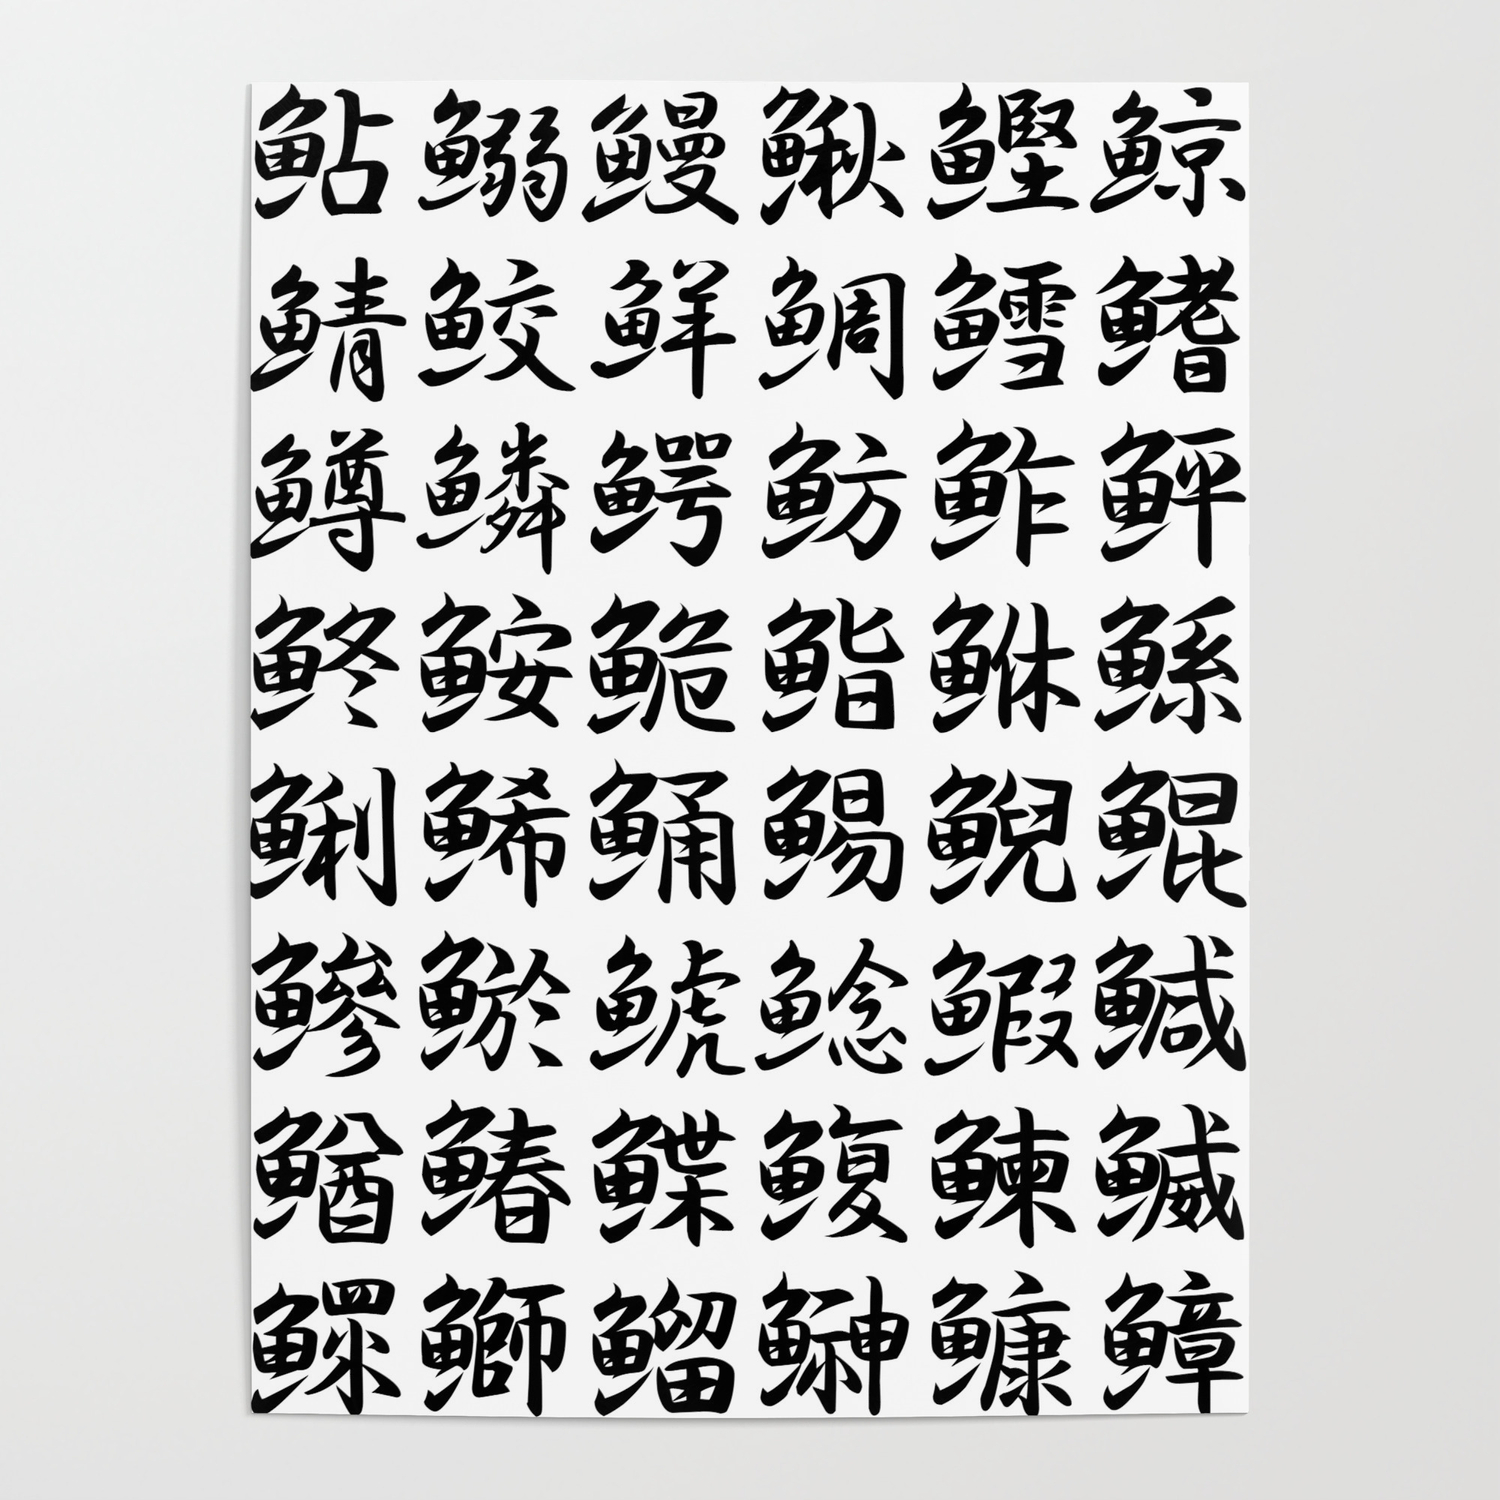 鮎鰯鰻鰍鰹鯨
鯖鮫鮮鯛鱈鰭
鱒鱗鰐魴鮓鮃
鮗鮟鮠鮨鮴鯀
鯏鯑鯒鯣鯢鯤
鰺鯲鯱鯰鰕鰔
鰌鰆鰈鰒鰊鰄
鰥鰤鰡鰰鱇鱆